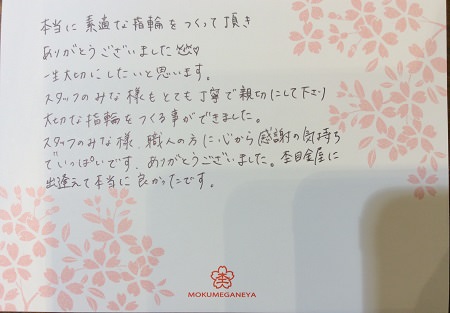 本当に素適な指輪をつくって頂き
ありがとうございました
一生大切にしたいと思います。
スタッフのみな様もとても丁寧で親切にして下さり
大切な指輪をつくる事ができました。
スタッフのみな様、職人の方に心から感謝の気持ち
でいっぱいです。ありがとうございました。杢目金屋に
出逢えて本当に良かったです。
杢
MOKUMEGANEYA